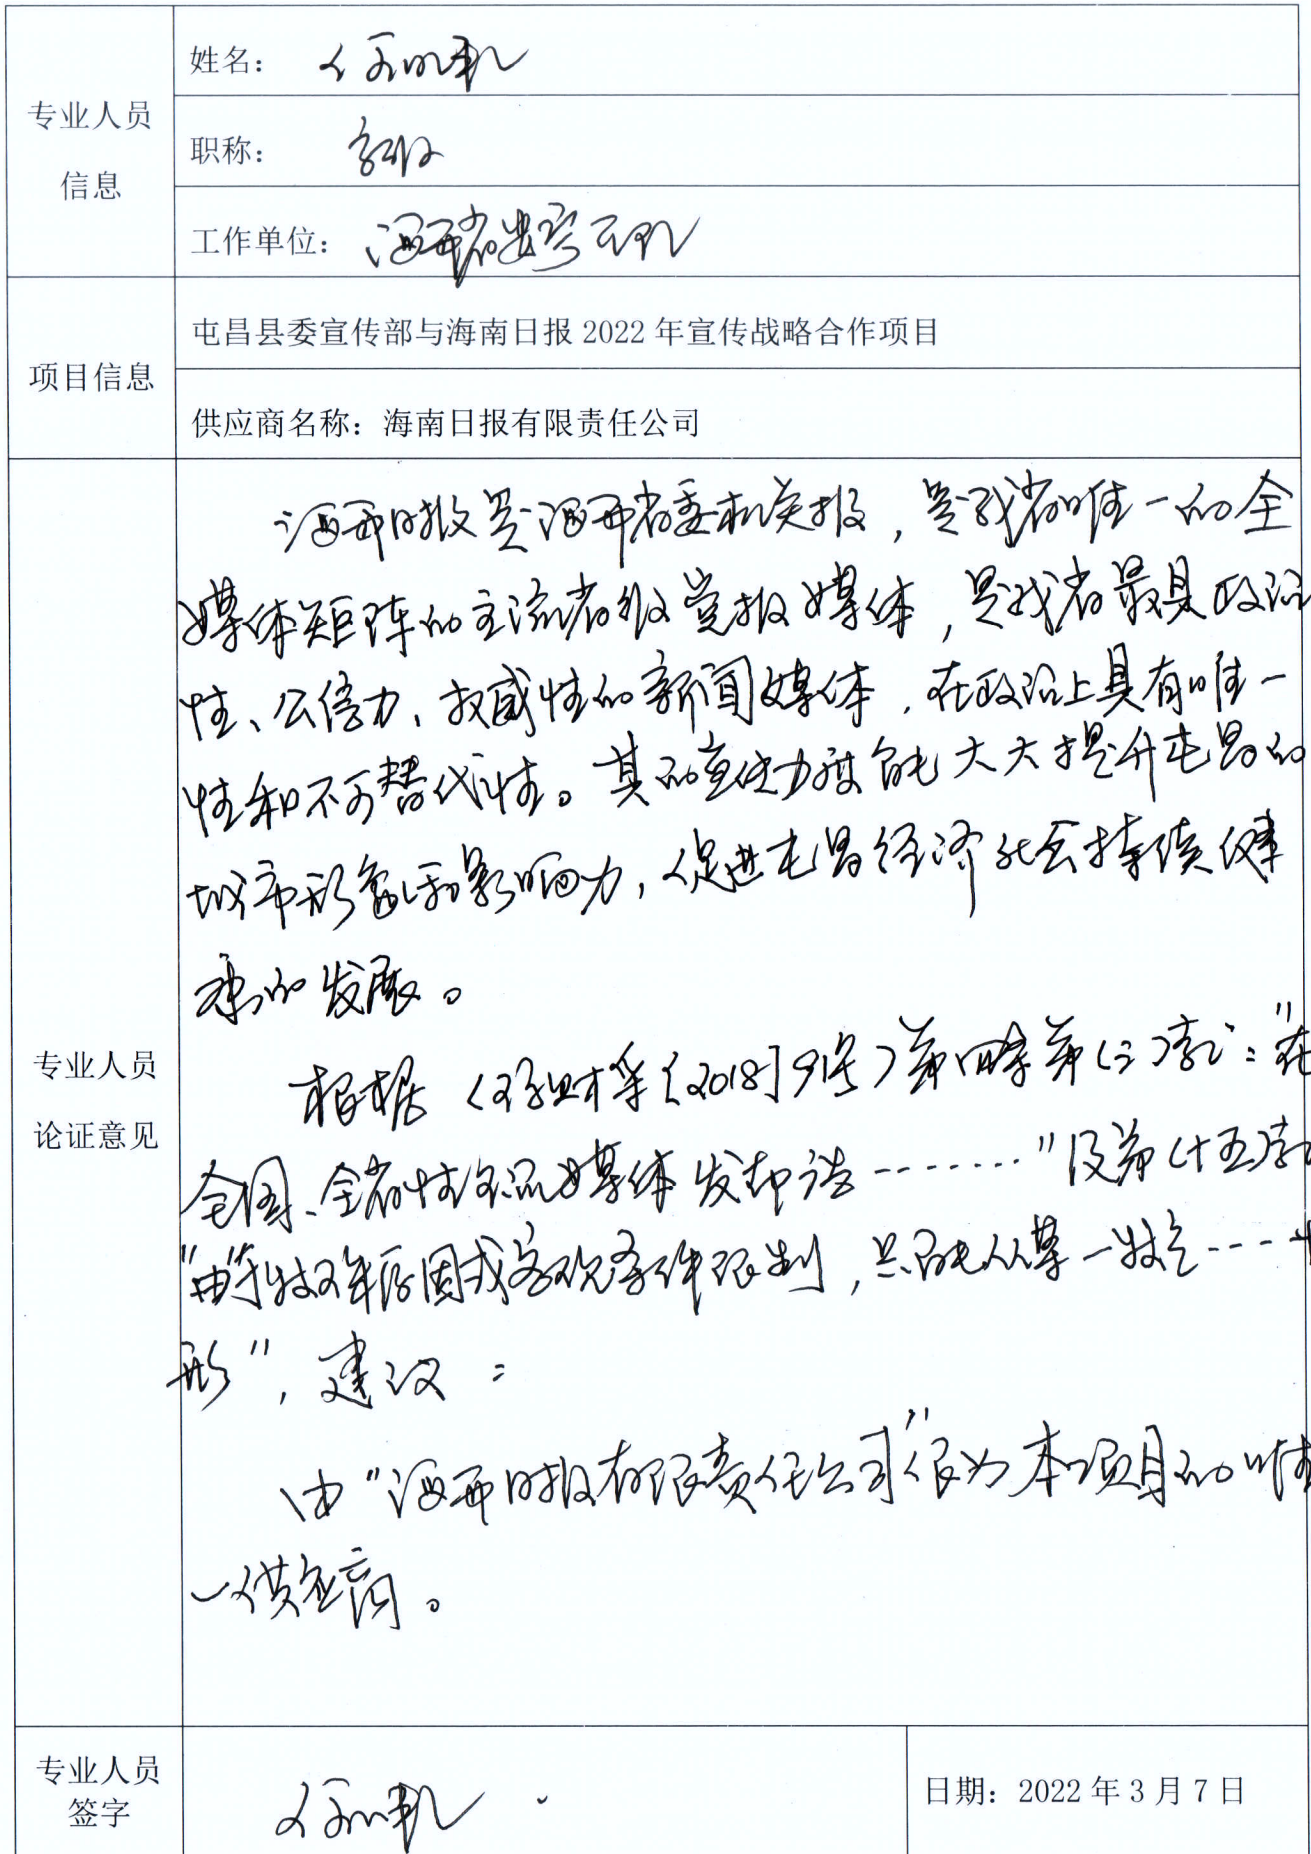 专业人员
信息
姓名：
职称：
工作单位：海南省
项目信息
屯昌县委宣传部与海南日报 2022 年宣传战略合作项目
供应商名称：海南日报有限责任公司
专业人员
论证意见
海南日报是海南省委机关报，是我省唯一的全
媒体矩阵的主流省级党报媒体，是我省最具政治
性、公信力、权威性的新闻媒体，在政治上具有唯一
性和不可替代性。其的宣传力度能大大提升屯昌的
城市形象和影响力，促进屯昌经济社会持续健
康的发展。
根据《琼财采〔2018〕9号》第四条第(三)款：“在
全国、全省性主流媒体发布…………”及第(十五)款
“由于特殊原因或客观条件限制，只能从某一特定----
形”，建议：
由“海南日报有限责任公司”作为本项目的唯
一供应商。
专业人员
签字
日期：2022 年 3 月 7 日